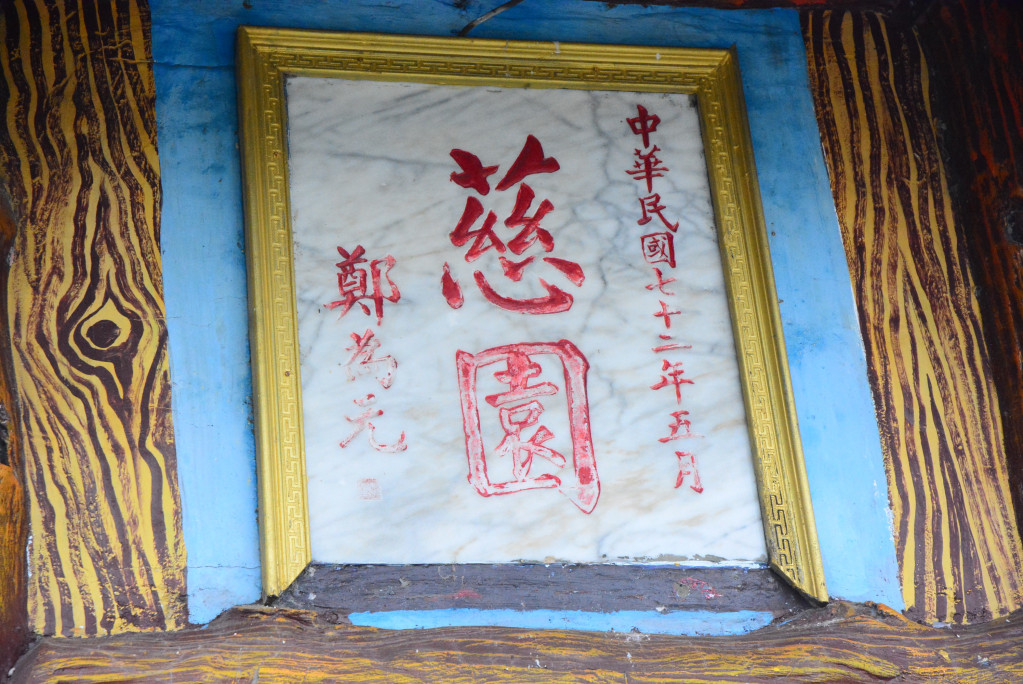 中華民國七十二年五月
慈園
鄭為元